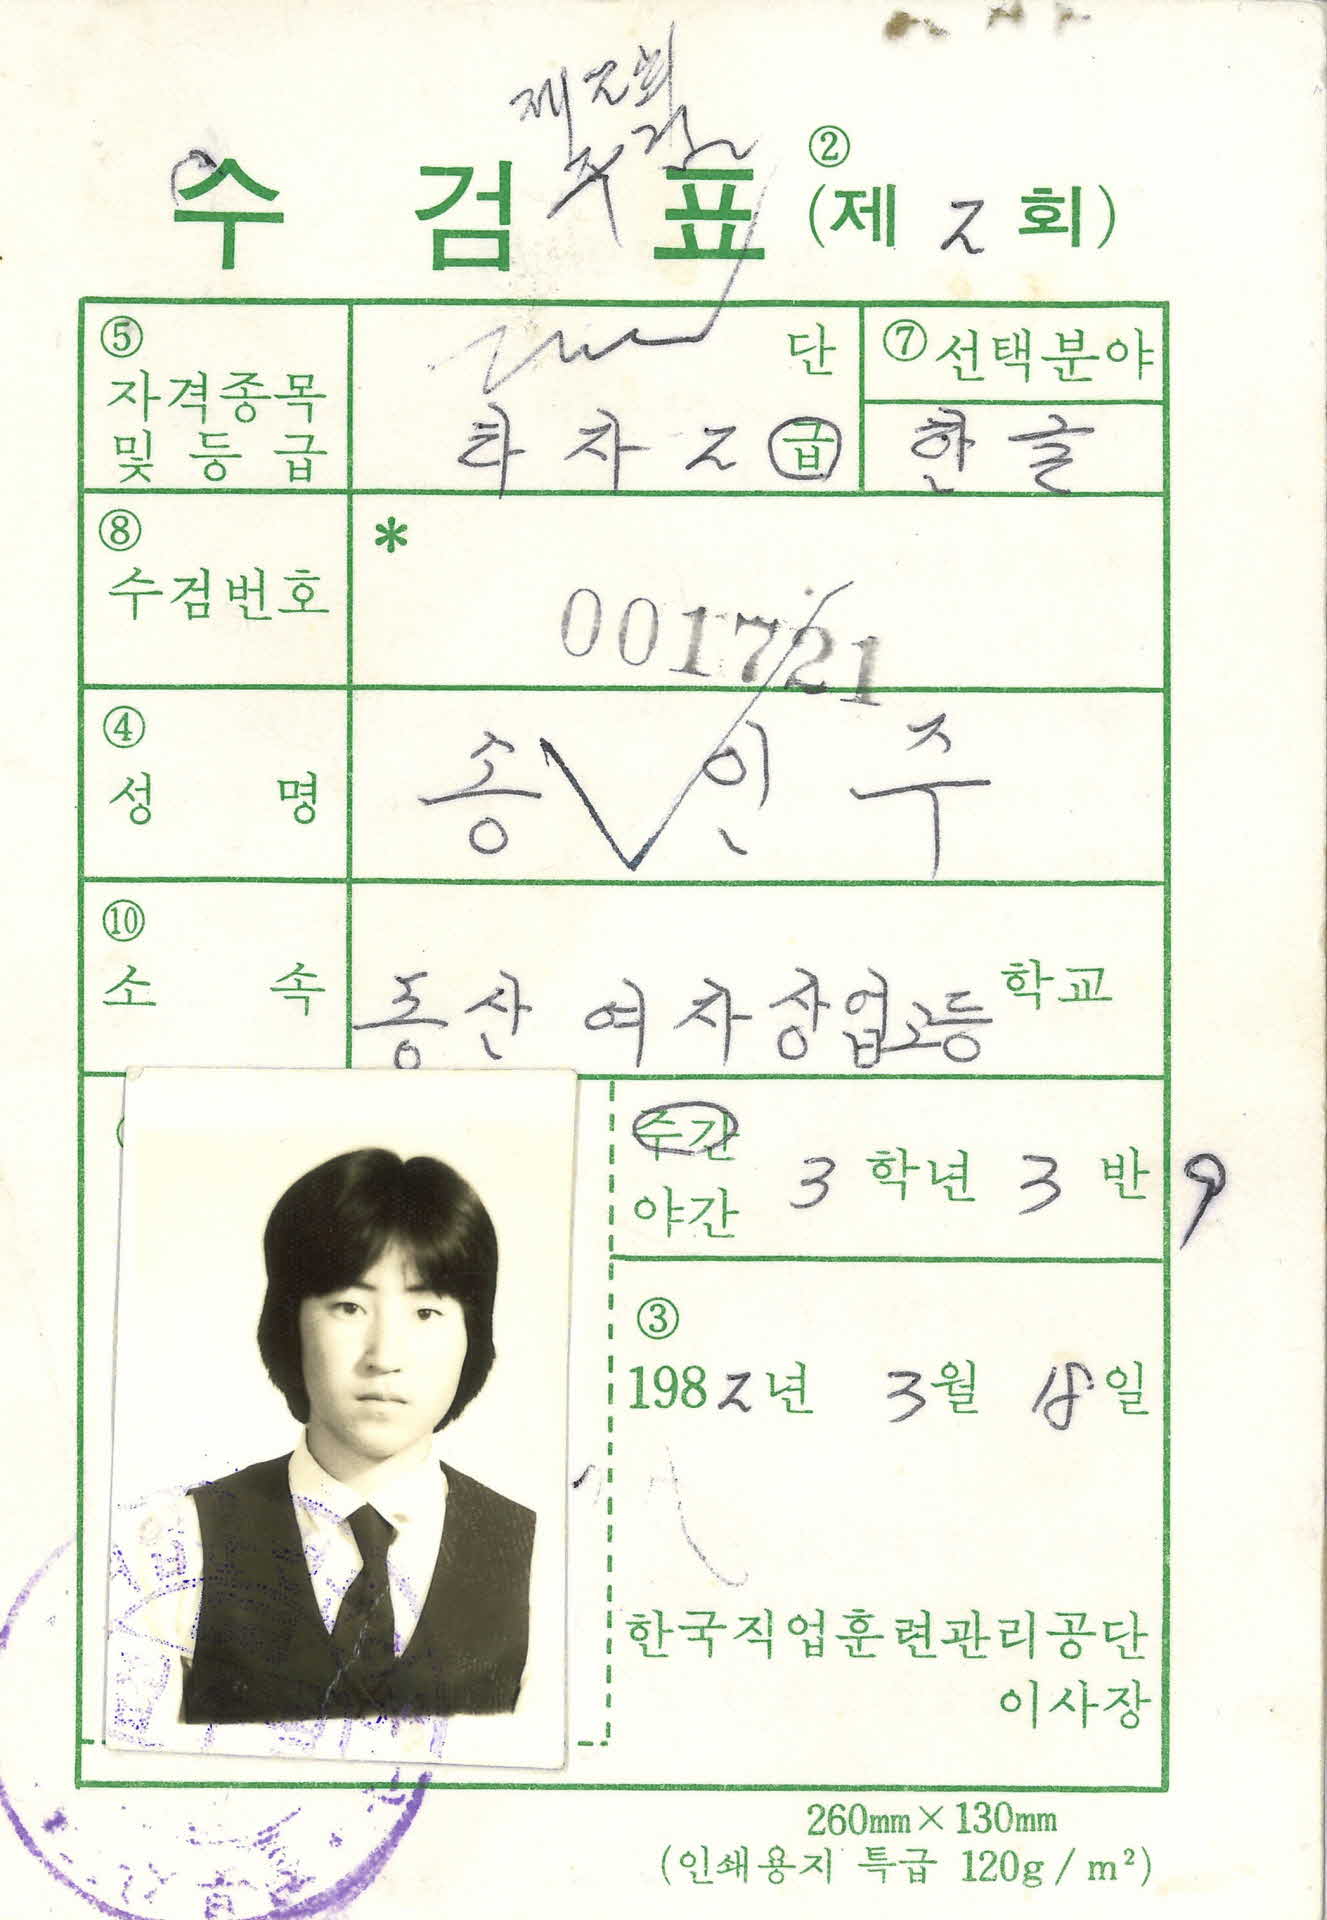 제 2회
수 검 표 ② (제 2 회)
⑤ 자격종목 및 등급
단
타자 2 급
⑦ 선택분야
한글
⑧ 수검번호
*
001721
④ 성 명
송 인 주
⑩ 소 속
동산 여자상업고등 학교
주간
야간
3 학년 3 반 9
③
1982년 3월 18일
한국직업훈련관리공단
이사장
260mm×130mm
(인쇄용지 특급 120g/m²)